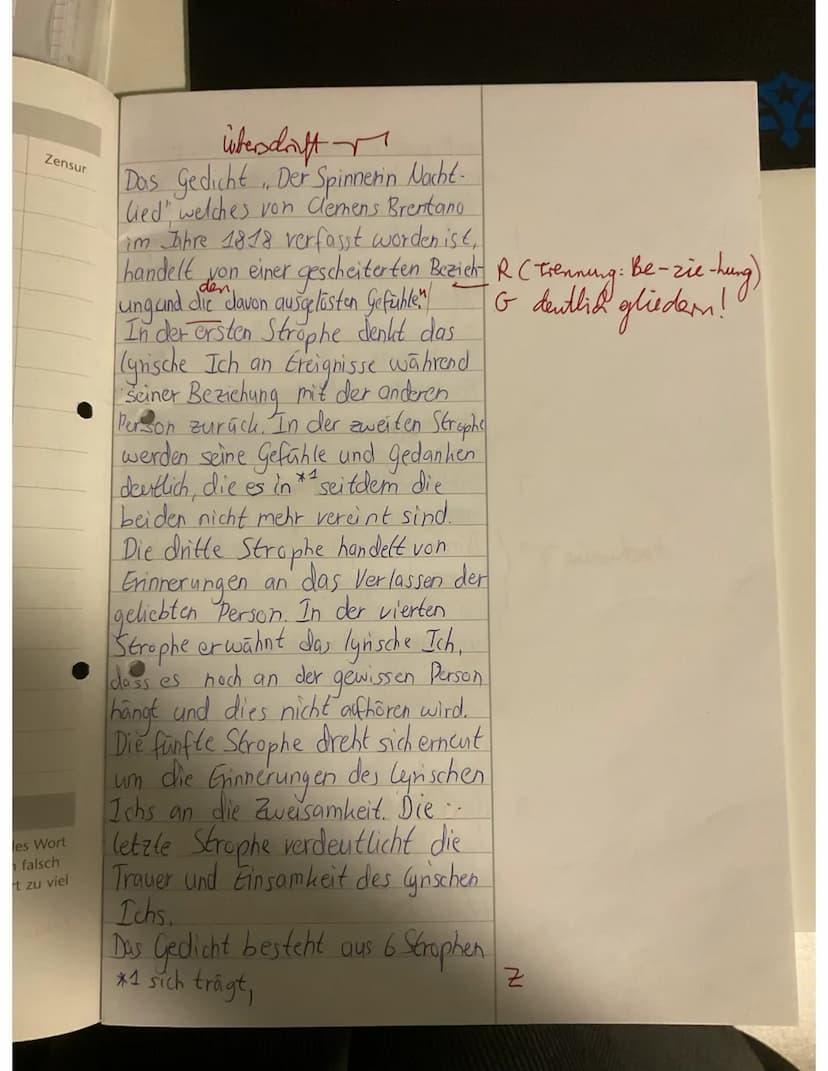 Zensur
Überschrift
Das Gedicht „Der Spinnerin Nacht-
lied", welches von Clemens Brentano
im Jahre 1818 verfasst worden ist,
handelt von einer gescheiterten Bezieh-
R (Trennung: Be-zie-hung)
den
ung und die davon ausgelösten Gefühle.n
G deutlich gliedern!
In der ersten Strophe denkt das
lyrische Ich an Ereignisse während
seiner Beziehung mit der anderen
Person zurück. In der zweiten Strophe
werden seine Gefühle und Gedanken
deutlich, die es in *1 seitdem die
beiden nicht mehr vereint sind.
Die dritte Strophe handelt von
Erinnerungen an das Verlassen der
geliebten Person. In der vierten
Strophe erwähnt das lyrische Ich,
dass es noch an der gewissen Person
hängt und dies nicht aufhören wird.
Die fünfte Strophe dreht sich erneut
um die Erinnerungen des lyrischen
Ichs an die Zweisamkeit. Die
letzte Strophe verdeutlicht die
Trauer und Einsamkeit des lyrischen
Ichs.
Das Gedicht besteht aus 6 Strophen
*1 sich trägt,
Z
es Wort
falsch
t zu viel